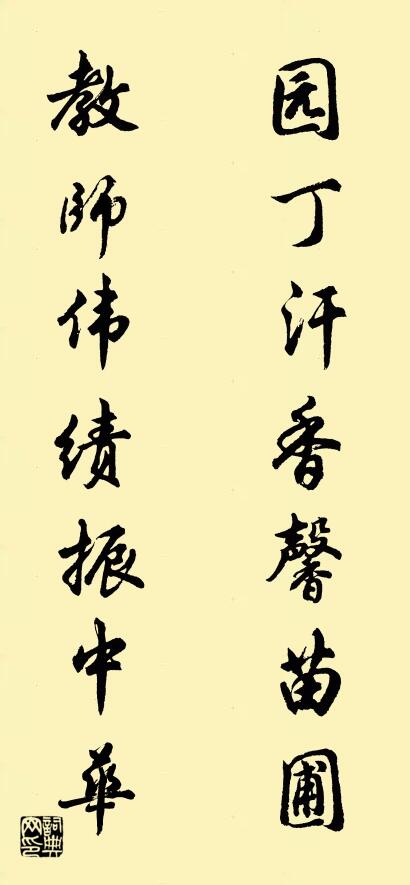 园丁汗香馨苗圃
教师伟绩振中華
詞典网印